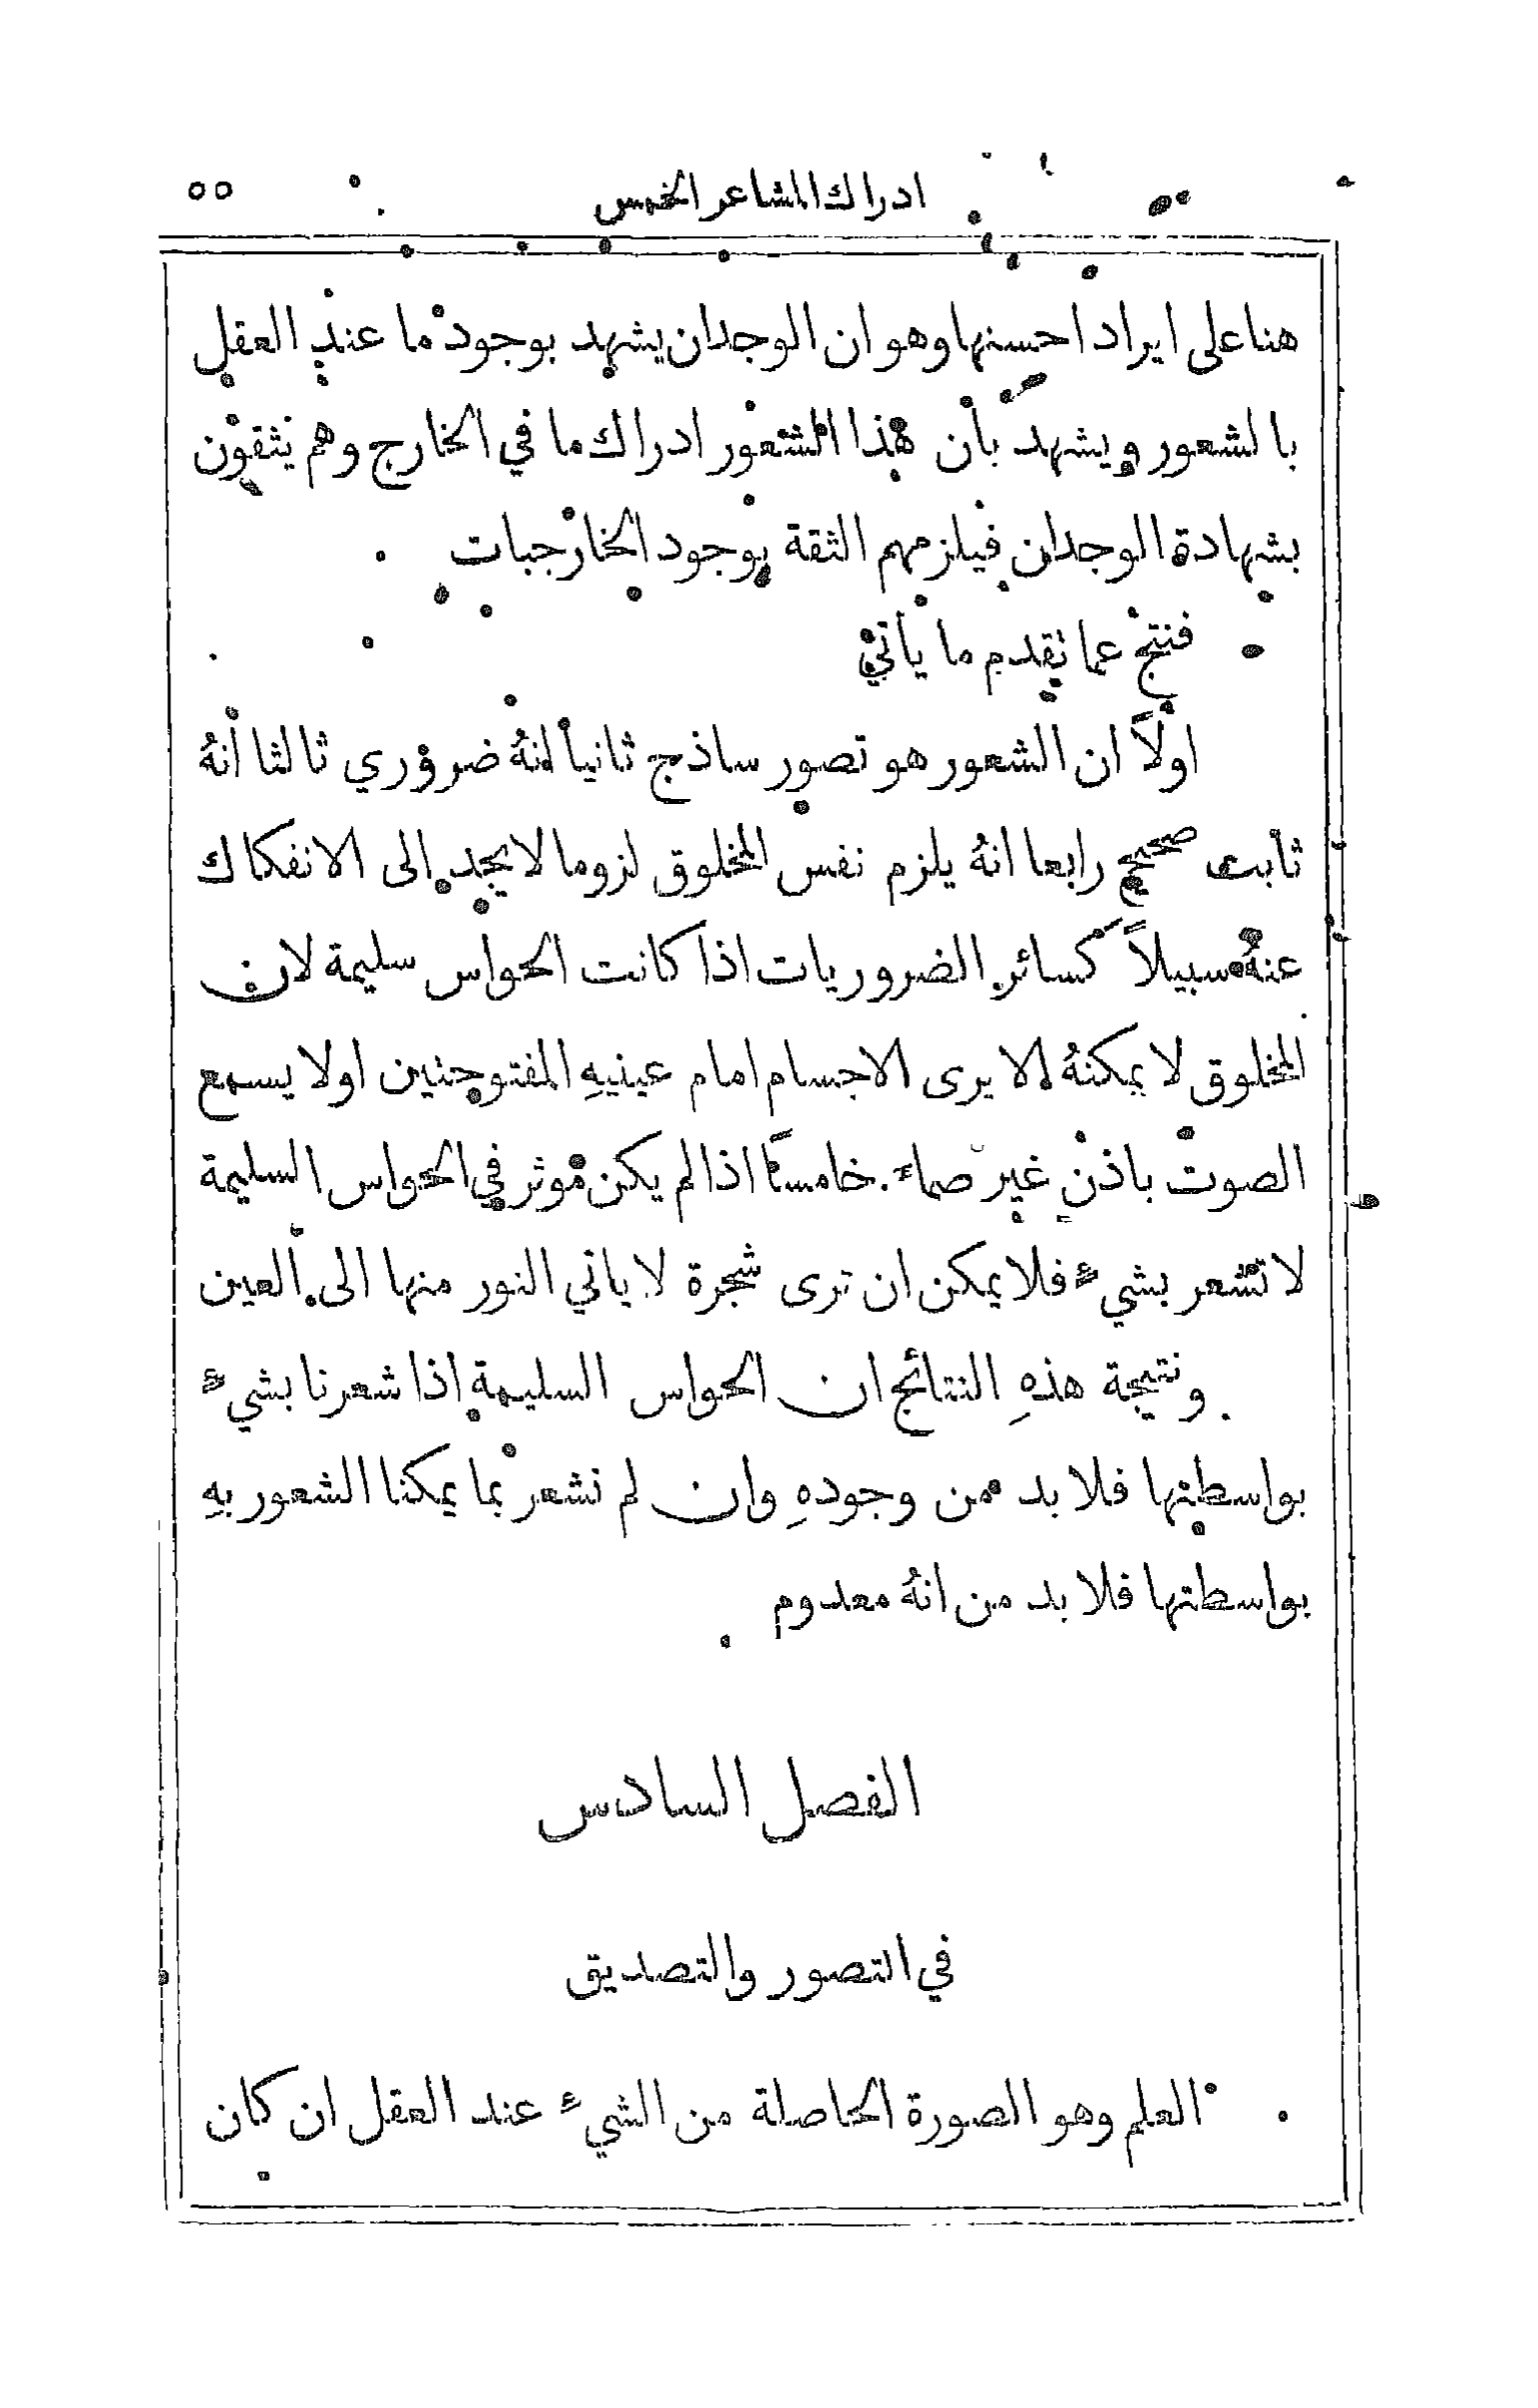 ادراك المشاعر الخمس ٥٥
هنا على ايراد احسنها وهو ان الوجدان يشهد بوجود ما عند العقل
بالشعور ويشهد بأن هذا الشعور ادراك ما في الخارج وهم يثقون
بشهادة الوجدان فيلزمهم الثقة بوجود الخارجيات
فنتج عما تقدم ما يأتي
اولاً ان الشعور هو تصور ساذج ثانياً انهُ ضروري ثالثا انهُ
ثابت صحيح رابعا انهُ يلزم نفس المخلوق لزوما لا يجد الى الانفكاك
عنهُ سبيلاً كسائر الضروريات اذا كانت الحواس سليمة لان
المخلوق لا يمكنهُ الا يرى الاجسام امام عينيهِ المفتوحتين او لا يسمع
الصوت باذنٍ غير صماء. خامسًا اذا لم يكن موثر في الحواس السليمة
لا تشعر بشيء فلا يمكن ان ترى شجرة لا ياتي النور منها الى العين
ونتيجة هذهِ النتائج ان الحواس السليمة اذا شعرنا بشيء
بواسطتها فلا بد من وجودهِ وان لم نشعر بما يمكنا الشعور بهِ
بواسطتها فلا بد من انهُ معدوم
الفصل السادس
في التصور والتصديق
العلم وهو الصورة الحاصلة من الشيء عند العقل ان كان